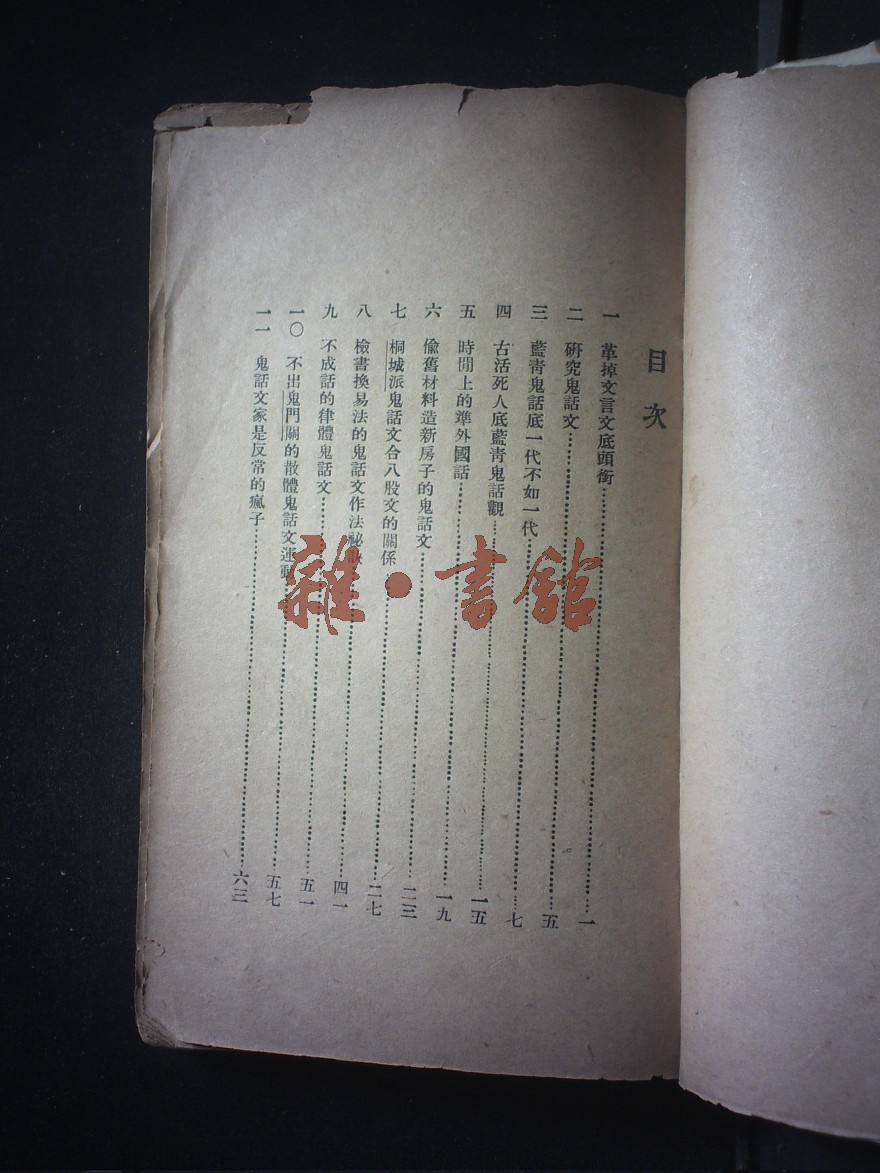 目次
一 革掉文言文底頭銜……一
二 研究鬼話文……五
三 藍青鬼話底一代不如一代……七
四 古活死人底藍青鬼話觀……一五
五 時間上的準外國話……一九
六 偸舊材料造新房子的鬼話文……二三
七 桐城派鬼話文合八股文的關係……二七
八 檢書換易法的鬼話文作法祕訣……四一
九 不成話的律體鬼話文……五一
一〇 不出鬼門關的散體鬼話文運動……五七
一一 鬼話文家是反常的瘋子……六三
雜·書館